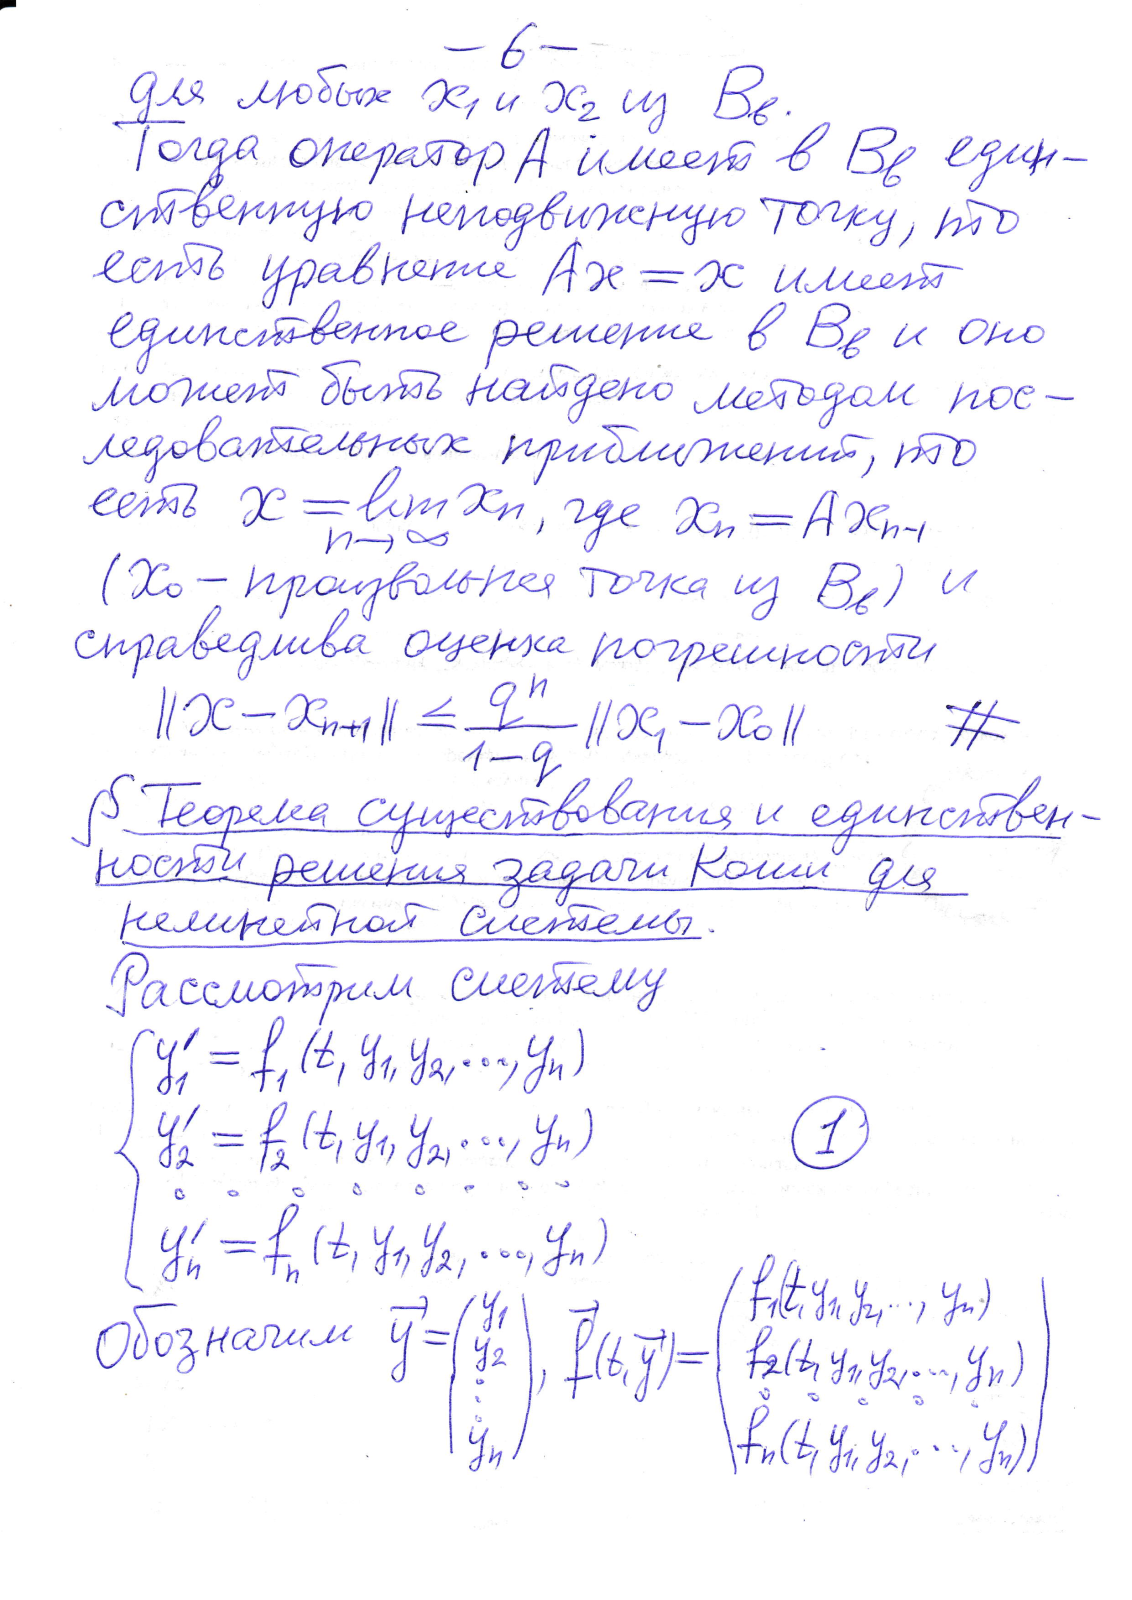 — 6 —
для любых x₁ и x₂ из B_b.
Тогда оператор A имеет в B_b един-
ственную неподвижную точку, то
есть уравнение Ax = x имеет
единственное решение в B_b и оно
может быть найдено методом пос-
ледовательных приближений, то
есть x = lim xₙ, где xₙ = Axₙ₋₁
n→∞
(x₀ – произвольная точка из B_b) и
справедлива оценка погрешности
||x − xₙ₊₁|| ≤ qⁿ/(1−q) ||x₁ − x₀|| #
§ Теорема существования и единствен-
ности решения задачи Коши для
нелинейной системы.
Рассмотрим систему
y₁′ = f₁(t, y₁, y₂, ..., yₙ)
y₂′ = f₂(t, y₁, y₂, ..., yₙ) ①
. . . . . . . .
yₙ′ = fₙ(t, y₁, y₂, ..., yₙ)
Обозначим y⃗ = (y₁ y₂ ⋮ yₙ), f⃗(t, y⃗) = (f₁(t, y₁, y₂, ..., yₙ)
f₂(t, y₁, y₂, ..., yₙ)
. . . . .
fₙ(t, y₁, y₂, ..., yₙ))